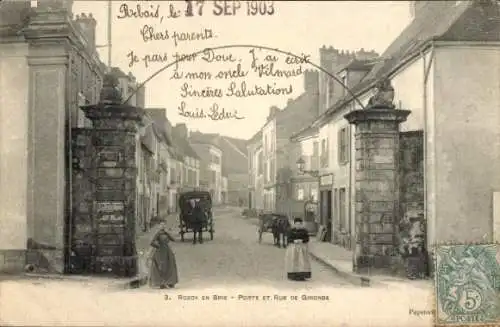 Rebais, le 17 SEP 1903
Chers parents.
Je pars pour Doue. J'ai écrit
à mon oncle Vilmard
Sincères Salutations
Louis. Leduc
3. REBAIS EN BRIE - PORTE ET RUE DE GIRONDE
5